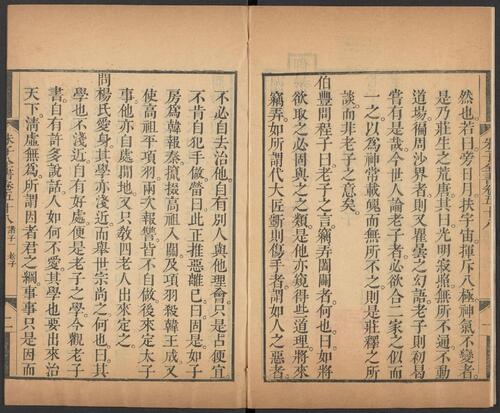 然也若曰旁日月扶宇宙揮斥八極神氣不變者
是乃莊生之荒唐其曰光明寂照無所不通不動
道場徧周沙界者則又瞿曇之幻語老子則初曷
嘗有是哉今世人論老子者必欲合二家之似而
一之以為神常載魄而無所不之則是莊釋之所
談而非老子之意矣
伯豐問程子曰老子之言竊弄闔闢者何也曰如將
欲取之必固與之之類是他亦窺得些道理將來
竊弄如所謂代大匠斲則傷手者謂如人之惡者
不必自去治他自有別人與他理會只是占便宜
不肯自犯手做𤲟曰此正推惡離己曰固是如子
房為韓報秦攛掇高祖入關及項羽殺韓王成又
使高祖平項羽兩次報讐皆不自做後來定太子
事他亦自處閒地又只教四老人出來定之
問楊氏愛身其學亦淺近而舉世宗尚之何也曰其
學也不淺近自有好處便是老子之學今觀老子
書自有許多說話人如何不愛其學也要出來治
天下清虛無為所謂因者君之綱事事只是因而
朱子全書卷五十八
諸子一 老子